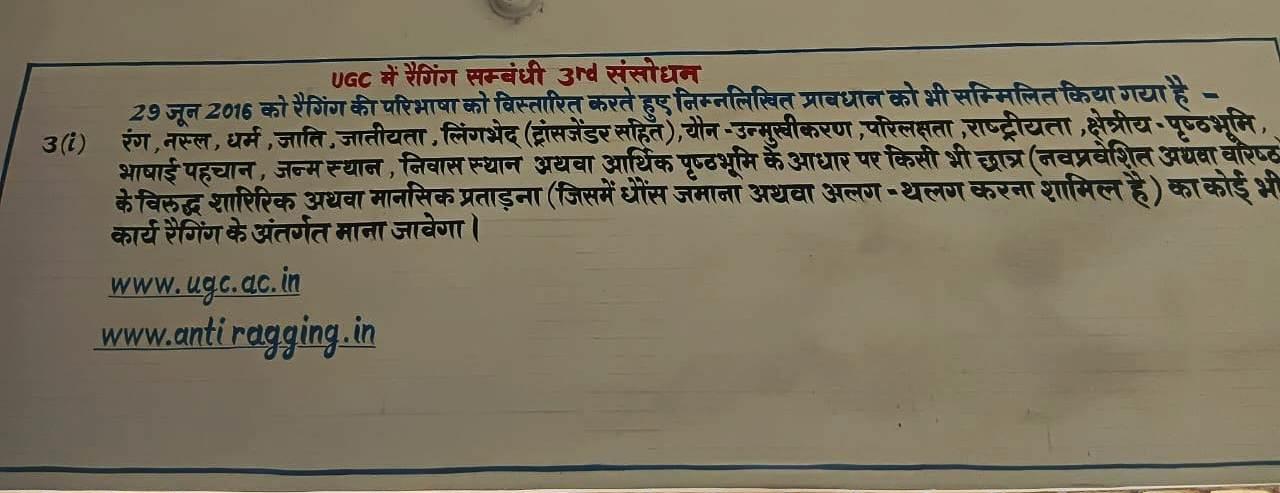 UGC में रैगिंग सम्बंधी 3rd संसोधन
29 जून 2016 को रैगिंग की परिभाषा को विस्तारित करते हुए निम्नलिखित प्रावधान को भी सम्मिलित किया गया है -
3(i) रंग, नस्ल, धर्म, जाति, जातीयता, लिंगभेद (ट्रांसजेंडर सहित), यौन-उन्मुखीकरण, परिलक्षता, राष्ट्रीयता, क्षेत्रीय-पृष्ठभूमि,
भाषाई पहचान, जन्म स्थान, निवास स्थान अथवा आर्थिक पृष्ठभूमि के आधार पर किसी भी छात्र (नवप्रवेशित अथवा वरिष्ठ
के विरुद्ध शारिरिक अथवा मानसिक प्रताड़ना (जिसमें धौंस जमाना अथवा अलग-थलग करना शामिल है) का कोई भी
कार्य रैगिंग के अंतर्गत माना जावेगा।
www.ugc.ac.in
www.antiragging.in